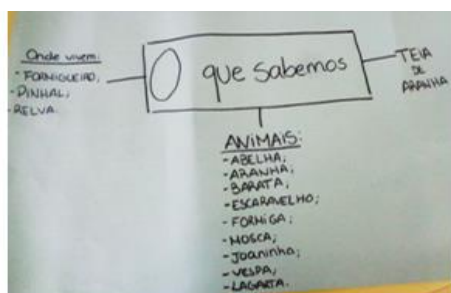 Onde vivem:
-FORMIGUEIRO;
-PINHAL;
-RELVA.
O que sabemos
-TEIA
DE
ARANHA
ANIMAIS:
-ABELHA;
-ARANHA;
-BARATA;
-ESCARAVELHO;
-FORMIGA;
-MOSCA;
-Joaninha;
-VESPA;
-LAGARTA.